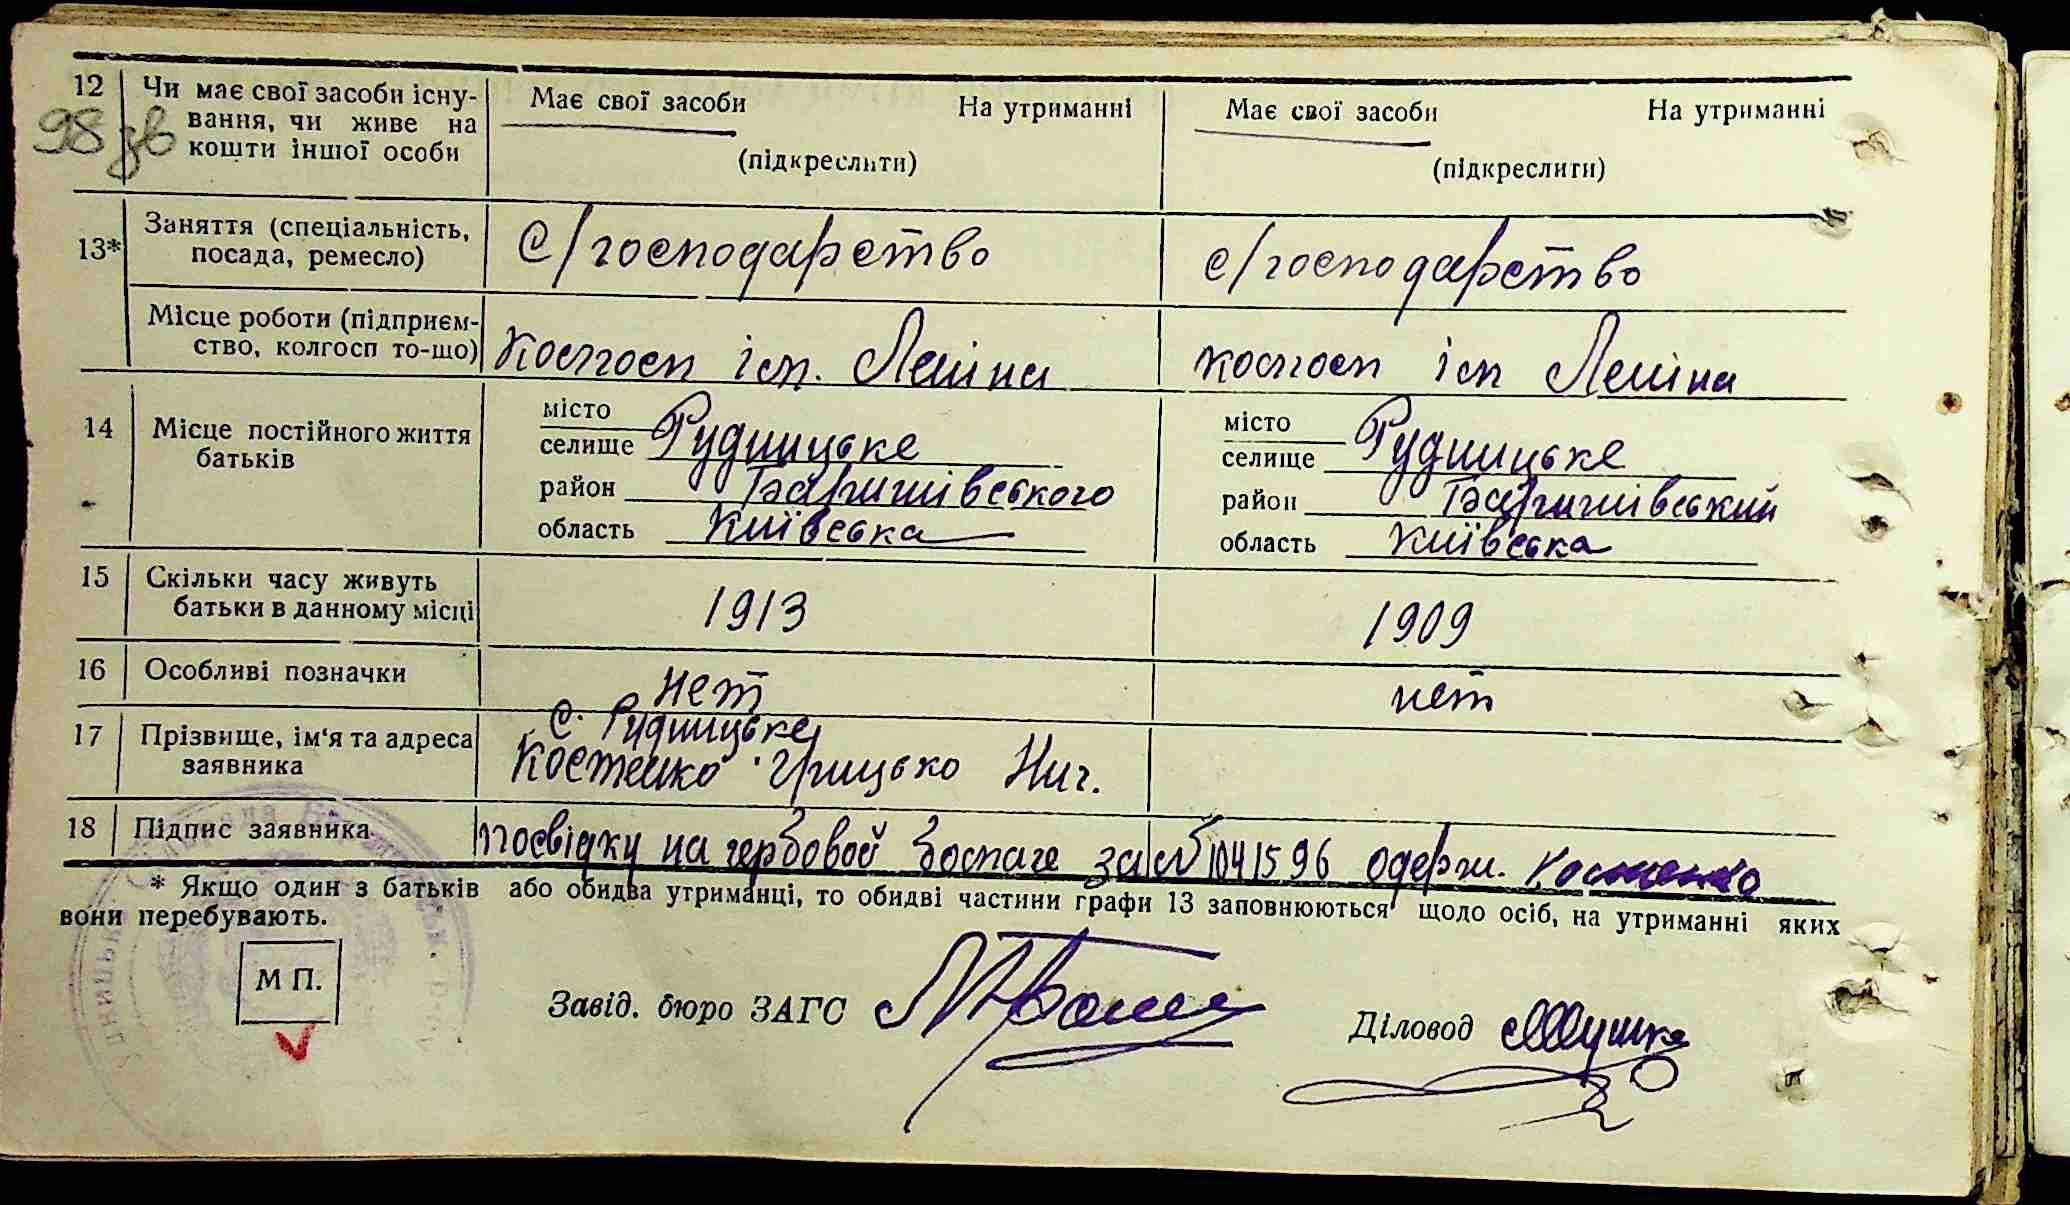 12 Чи має свої засоби існу- Має свої засоби На утриманні Має свої засоби На утриманні
98 зв вання, чи живе на
кошти іншої особи (підкреслити) (підкреслити)
13* Заняття (спеціальність, С/господарство с/господарство
посада, ремесло)
Місце роботи (підприєм- колгосп ім. Леніна колгосп ім Леніна
ство, колгосп то-що)
14 Місце постійного життя місто місто
батьків селище Рудницьке селище Рудницьке
район Баришівського район Баришівський
область Київська область Київська
15 Скільки часу живуть 1913 1909
батьки в данному місці
16 Особливі позначки нет нет
17 Прізвище, ім'я та адреса с. Рудницьке
заявника Костенко Грицько Нич.
18 Підпис заявника посвідку на гербовой бомаге за № 1041596 одерж. Костенко
* Якщо один з батьків або обидва утриманці, то обидві частини графи 13 заповнюються щодо осіб, на утриманні яких
вони перебувають.
М П.
Завід. бюро ЗАГС Діловод